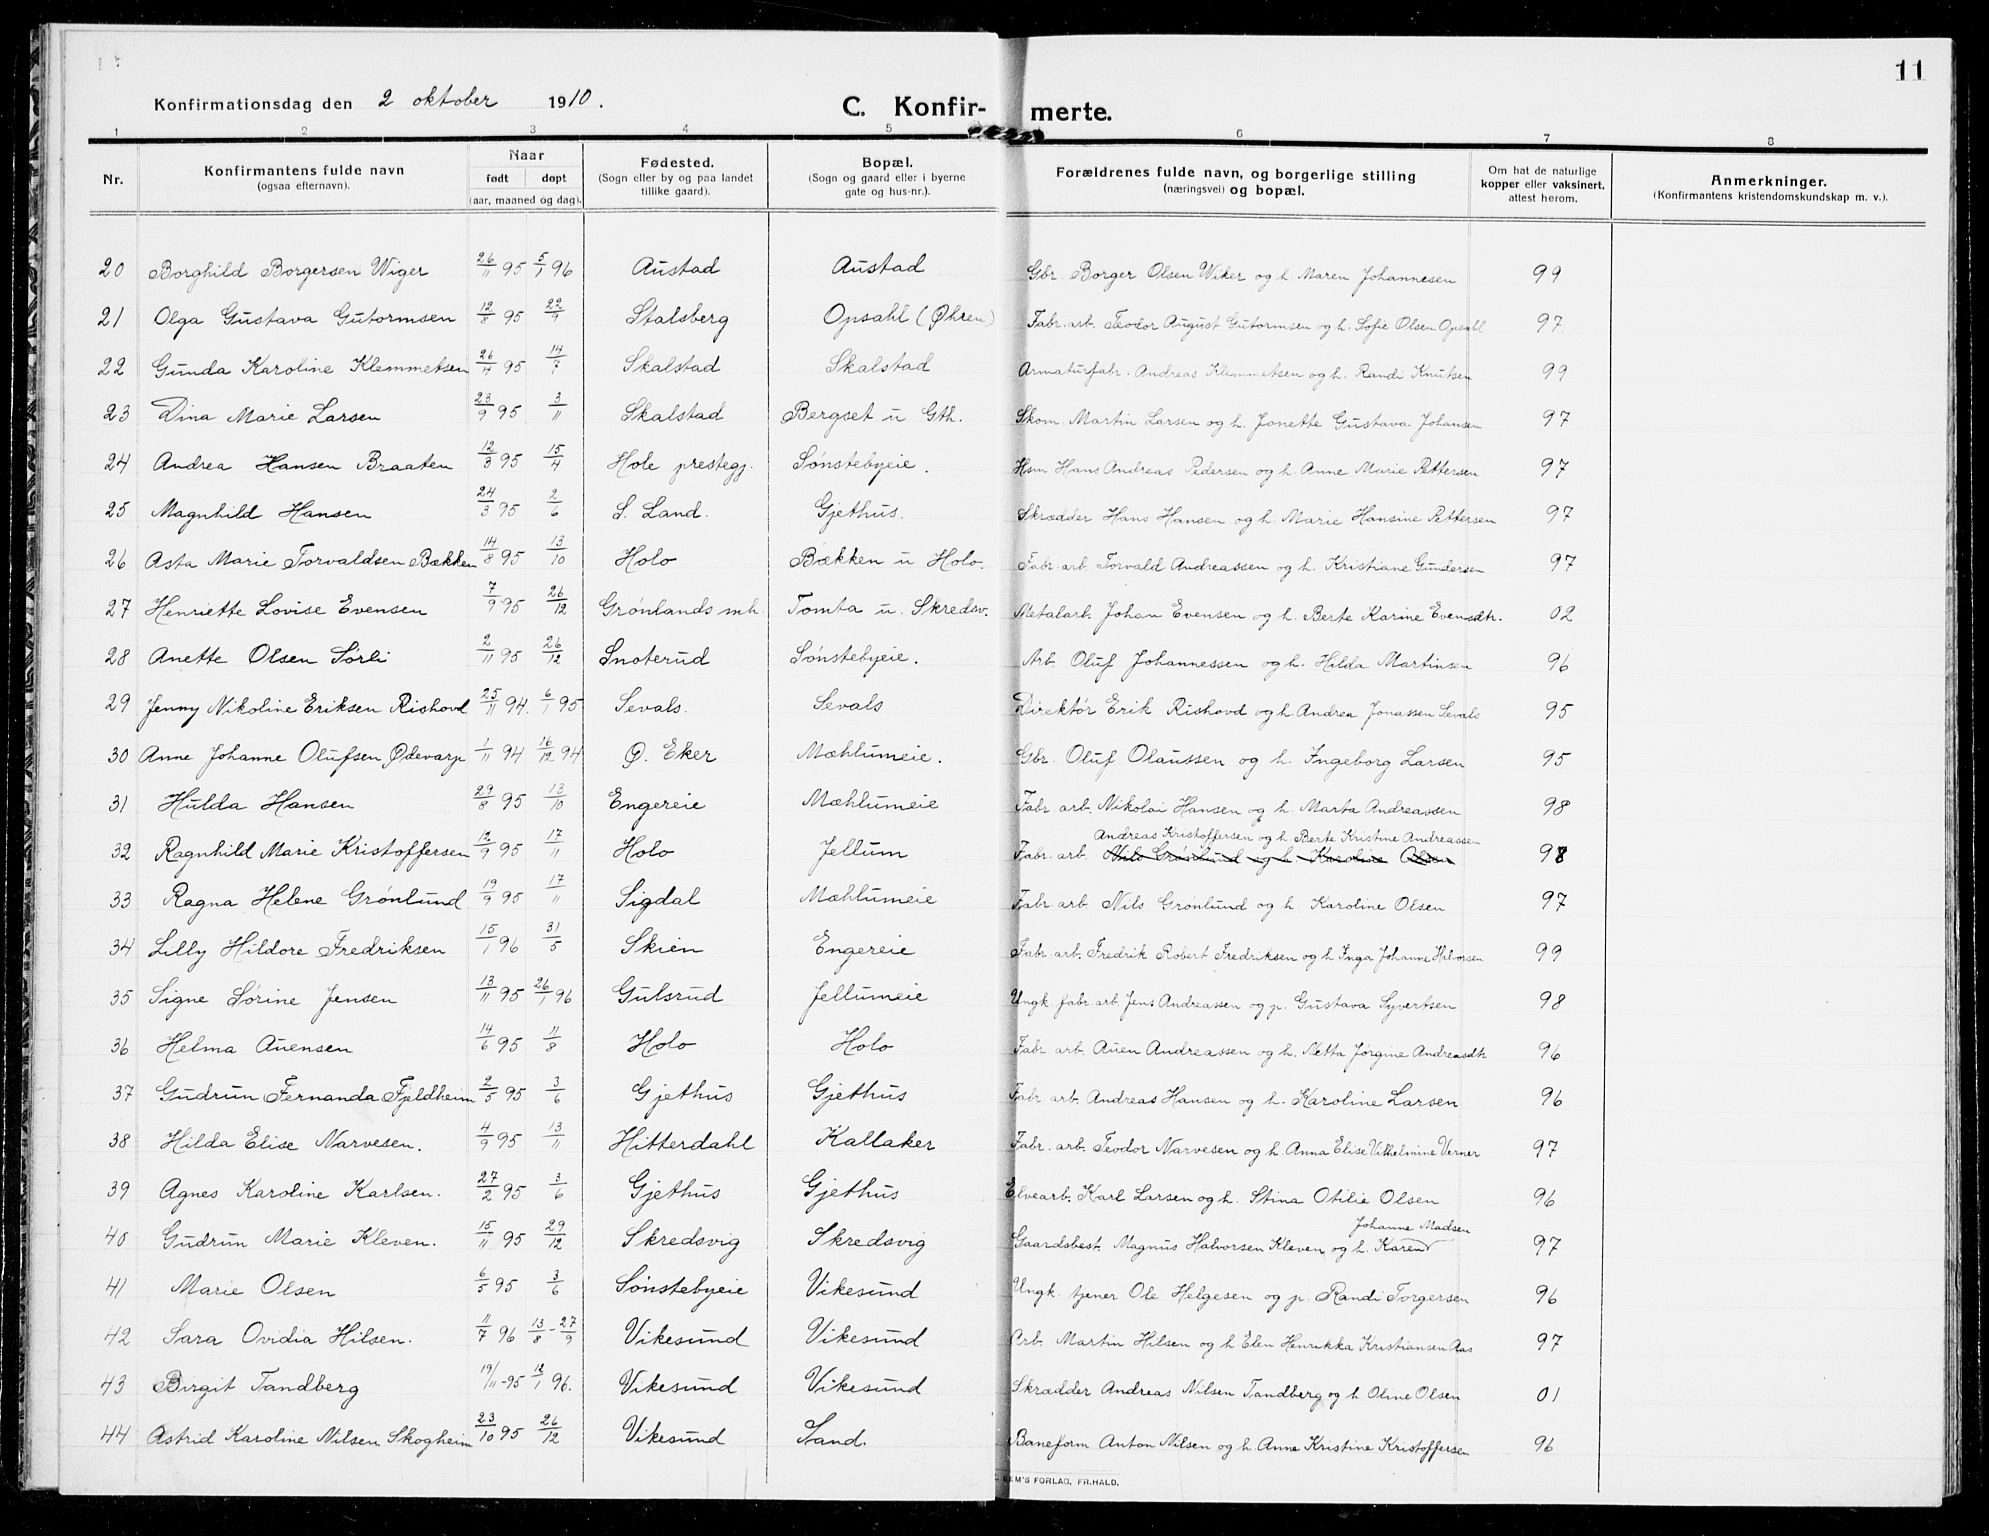 11
Konfirmationsdag den 2 oktober 1910.
C. Konfirmerte.
1 2 3 4 5 6 7 8
Nr.
Konfirmantens fulde navn
(ogsaa efternavn).
Naar
født døpt
(aar, maaned og dag).
Fødested.
(Sogn eller by og paa landet
tillike gaard).
Bopæl.
(Sogn og gaard eller i byerne
gate og hus-nr.).
Forældrenes fulde navn, og borgerlige stilling
(næringsvei) og bopæl.
Om hat de naturlige
kopper eller vaksinert,
attest herom.
Anmerkninger.
(Konfirmantens kristendomskundskap m. v.).
20 Borghild Borgersen Wiger 26/11 95 5/1 96 Austad Austad Gbr. Borger Olsen Wiker og h. Maren Johannesen 99
21 Olga Gustava Gutormsen 12/8 95 22/9 Stalsberg Opsahl (Øhren) Fabr. arb. Teodor August Gutormsen og h. Sofie Olsen Opsahl 97
22 Gunda Karoline Klemmetsen 26/4 95 14/7 Skalstad Skalstad Armaturfabr. Andreas Klemmetsen og h. Randi Knutsen 99
23 Dina Marie Larsen 23/9 95 3/11 Skalstad Bergset u Gth. Skom. Martin Larsen og h. Jonette Gustava Johansen 97
24 Andrea Hansen Braaten 12/3 95 15/4 Hole prestegj. Sønstebyeie. Hsm Hans Andreas Pedersen og h. Anne Marie Pettersen 97
25 Magnhild Hansen 24/3 95 2/6 S. Land. Gjethus. Skrædder Hans Hansen og h. Marie Hansine Pettersen 97
26 Asta Marie Torvaldsen Bækken 14/8 95 13/10 Holo Bækken u Holo. Fabr. arb. Torvald Andreassen og h. Kristiane Gundersen 97
27 Henriette Lovise Evensen 7/9 95 26/12 Grønlands mh. Tomta u. Skredsv. Metalarb. Johan Evensen og h. Berte Karine Evensdtr. 02
28 Anette Olsen Sørli 2/11 95 26/12 Snoterud Sønstebyeie. Arb. Oluf Johannessen og h. Hilda Martinsen 96
29 Jenny Nikoline Eriksen Rishovd 25/11 94. 6/1 95 Sevals. Sevals Direktør Erik Rishovd og h. Andrea Jonassen Sevals 95
30 Anne Johanne Olufsen Ødevarp 1/11 94 16/12 94 Ø. Eker Mæhlumeie. Gbr. Oluf Olaussen og h. Ingeborg Larsen 95
31 Hulda Hansen 29/8 95 13/10 Engereie Mæhlumeie Fabr. arb. Nikolai Hansen og h. Marta Andreassen 98
Andreas Kristoffersen og h. Berte Kristine Andreassen
32 Ragnhild Marie Kristoffersen 12/9 95 17/11 Holo Jellum Fabr. arb. Nils Grønlund og h. Karoline Olsen 98
33 Ragna Helene Grønlund 19/9 95 17/11 Sigdal Mæhlumeie Fabr. arb. Nils Grønlund og h. Karoline Olsen 97
34 Lilly Hildore Fredriksen 15/1 96 31/5 Skien Engereie Fabr. arb. Fredrik Robert Fredriksen og h Inga Johanne Halvorsen 99
35 Signe Sørine Jensen 13/11 95 26/1 96 Gulsrud Jellumeie Ungk. fabr. arb. Jens Andreassen og p. Gustava Syvertsen 98
36 Helma Auensen 14/6 95 11/8 Holo Holo Fabr. arb. Auen Andreassen og h. Netta Jørgine Andreasdtr 96
37 Gudrun Fernanda Fjeldheim 2/5 95 3/6 Gjethus Gjethus Fabr. arb. Andreas Hansen og h. Karoline Larsen 96
38 Hilda Elise Narvesen. 4/9 95 13/11 Hitterdahl Kallaker Fabr. arb. Teodor Narvesen og h. Anna Elise Vilhelmine Verner 97
39 Agnes Karoline Karlsen. 27/2 95 3/6 Gjethus Gjethus Elvearb. Karl Larsen og h. Stina Otilie Olsen 96
Johanne Madsen
40 Gudrun Marie Kleven. 15/11 95 29/12 Skredsvig Skredsvig Gaardsbest. Magnus Halvorsen Kleven og h. Karen 97
41 Marie Olsen 6/5 95 3/6 Sønstebyeie Vikesund Ungk. tjener Ole Helgesen og p. Randi Torgersen 96
42 Sara Ovidia Hilsen. 11/7 96 13/8 - 27/9 Vikesund Vikesund Arb. Martin Hilsen og h Elen Henrikka Kristiansen Aas 97
43 Birgit Tandberg 19/11 -95 12/1 96. Vikesund Vikesund Skrædder Andreas Nilsen Tandberg og h Oline Olsen 01
44 Astrid Karoline Nilsen Skogheim 23/10 95 26/12 Vikesund Sand. Baneform Anton Nilsen og h. Anne Kristine Kristoffersen 96
EM'S FORLAG, FR.HALD.